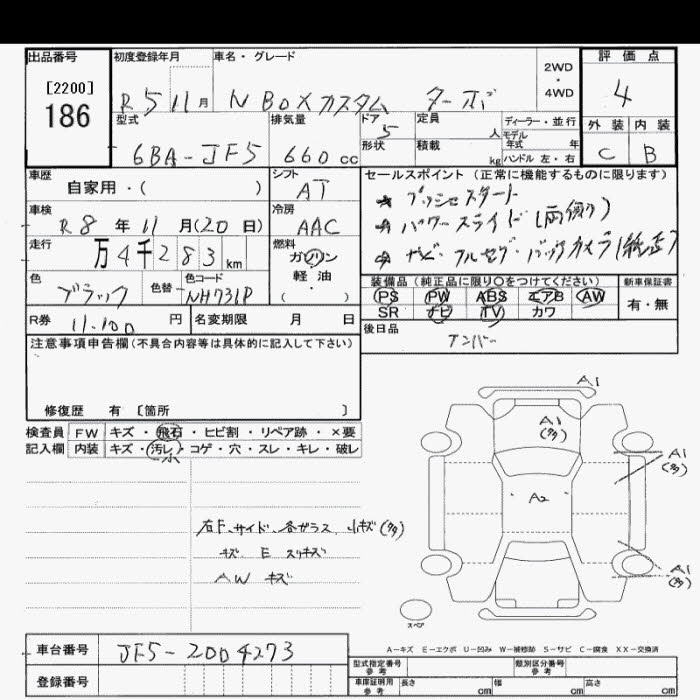 出品番号
[2200]
186
初度登録年月
R 5 11 月
車名・グレード
N BOX カスタム ターボ
2WD
・
4WD
評価点
4
外装 内装
C B
型式
6BA-JF5
排気量
660 cc
ドア
5
形状
定員
人
積載
kg
ディーラー・並行
モデル
年式 年
ハンドル 左・右
車歴
自家用・( )
シフト
AT
車検
R 8 年 11 月(20 日)
冷房
AAC
走行
万 4 千 2 8 3 km
燃料
ガソリン
軽・油
( ・ )
色
ブラック
色替
色コード
NH731P
R券
11,100 円
名変期限 月 日
セールスポイント(正常に機能するものに限ります)
プッシュスタート
パワースライド(両側)
ナビ・フルセグ・バックカメラ(純正)
装備品(純正品に限り○をつけてください)
PS PW ABS エアB AW
SR ナビ TV カワ
新車保証書
有・無
後日品
ナンバー
注意事項申告欄(不具合内容等は具体的に記入して下さい)
修復歴 有 [箇所 ]
検査員
記入欄
FW キズ・飛石・ヒビ割・リペア跡・×要
内装 キズ・汚レ・コゲ・穴・スレ・キレ・破レ
小
右F、サイド、各ガラス 小キズ(多)
キズ E スリキズ
AW キズ
A1
A1
(多)
A1
(多)
A2
A1
(多)
スペア
A-キズ E-エクボ U-凹み W-補修跡 S-サビ C-腐食 XX-交換済
車台番号
JF5-2004273
登録番号
型式指定番号
参考
類別区分番号
参考
車庫証明用
参考
長さ cm 幅 cm 高さ cm